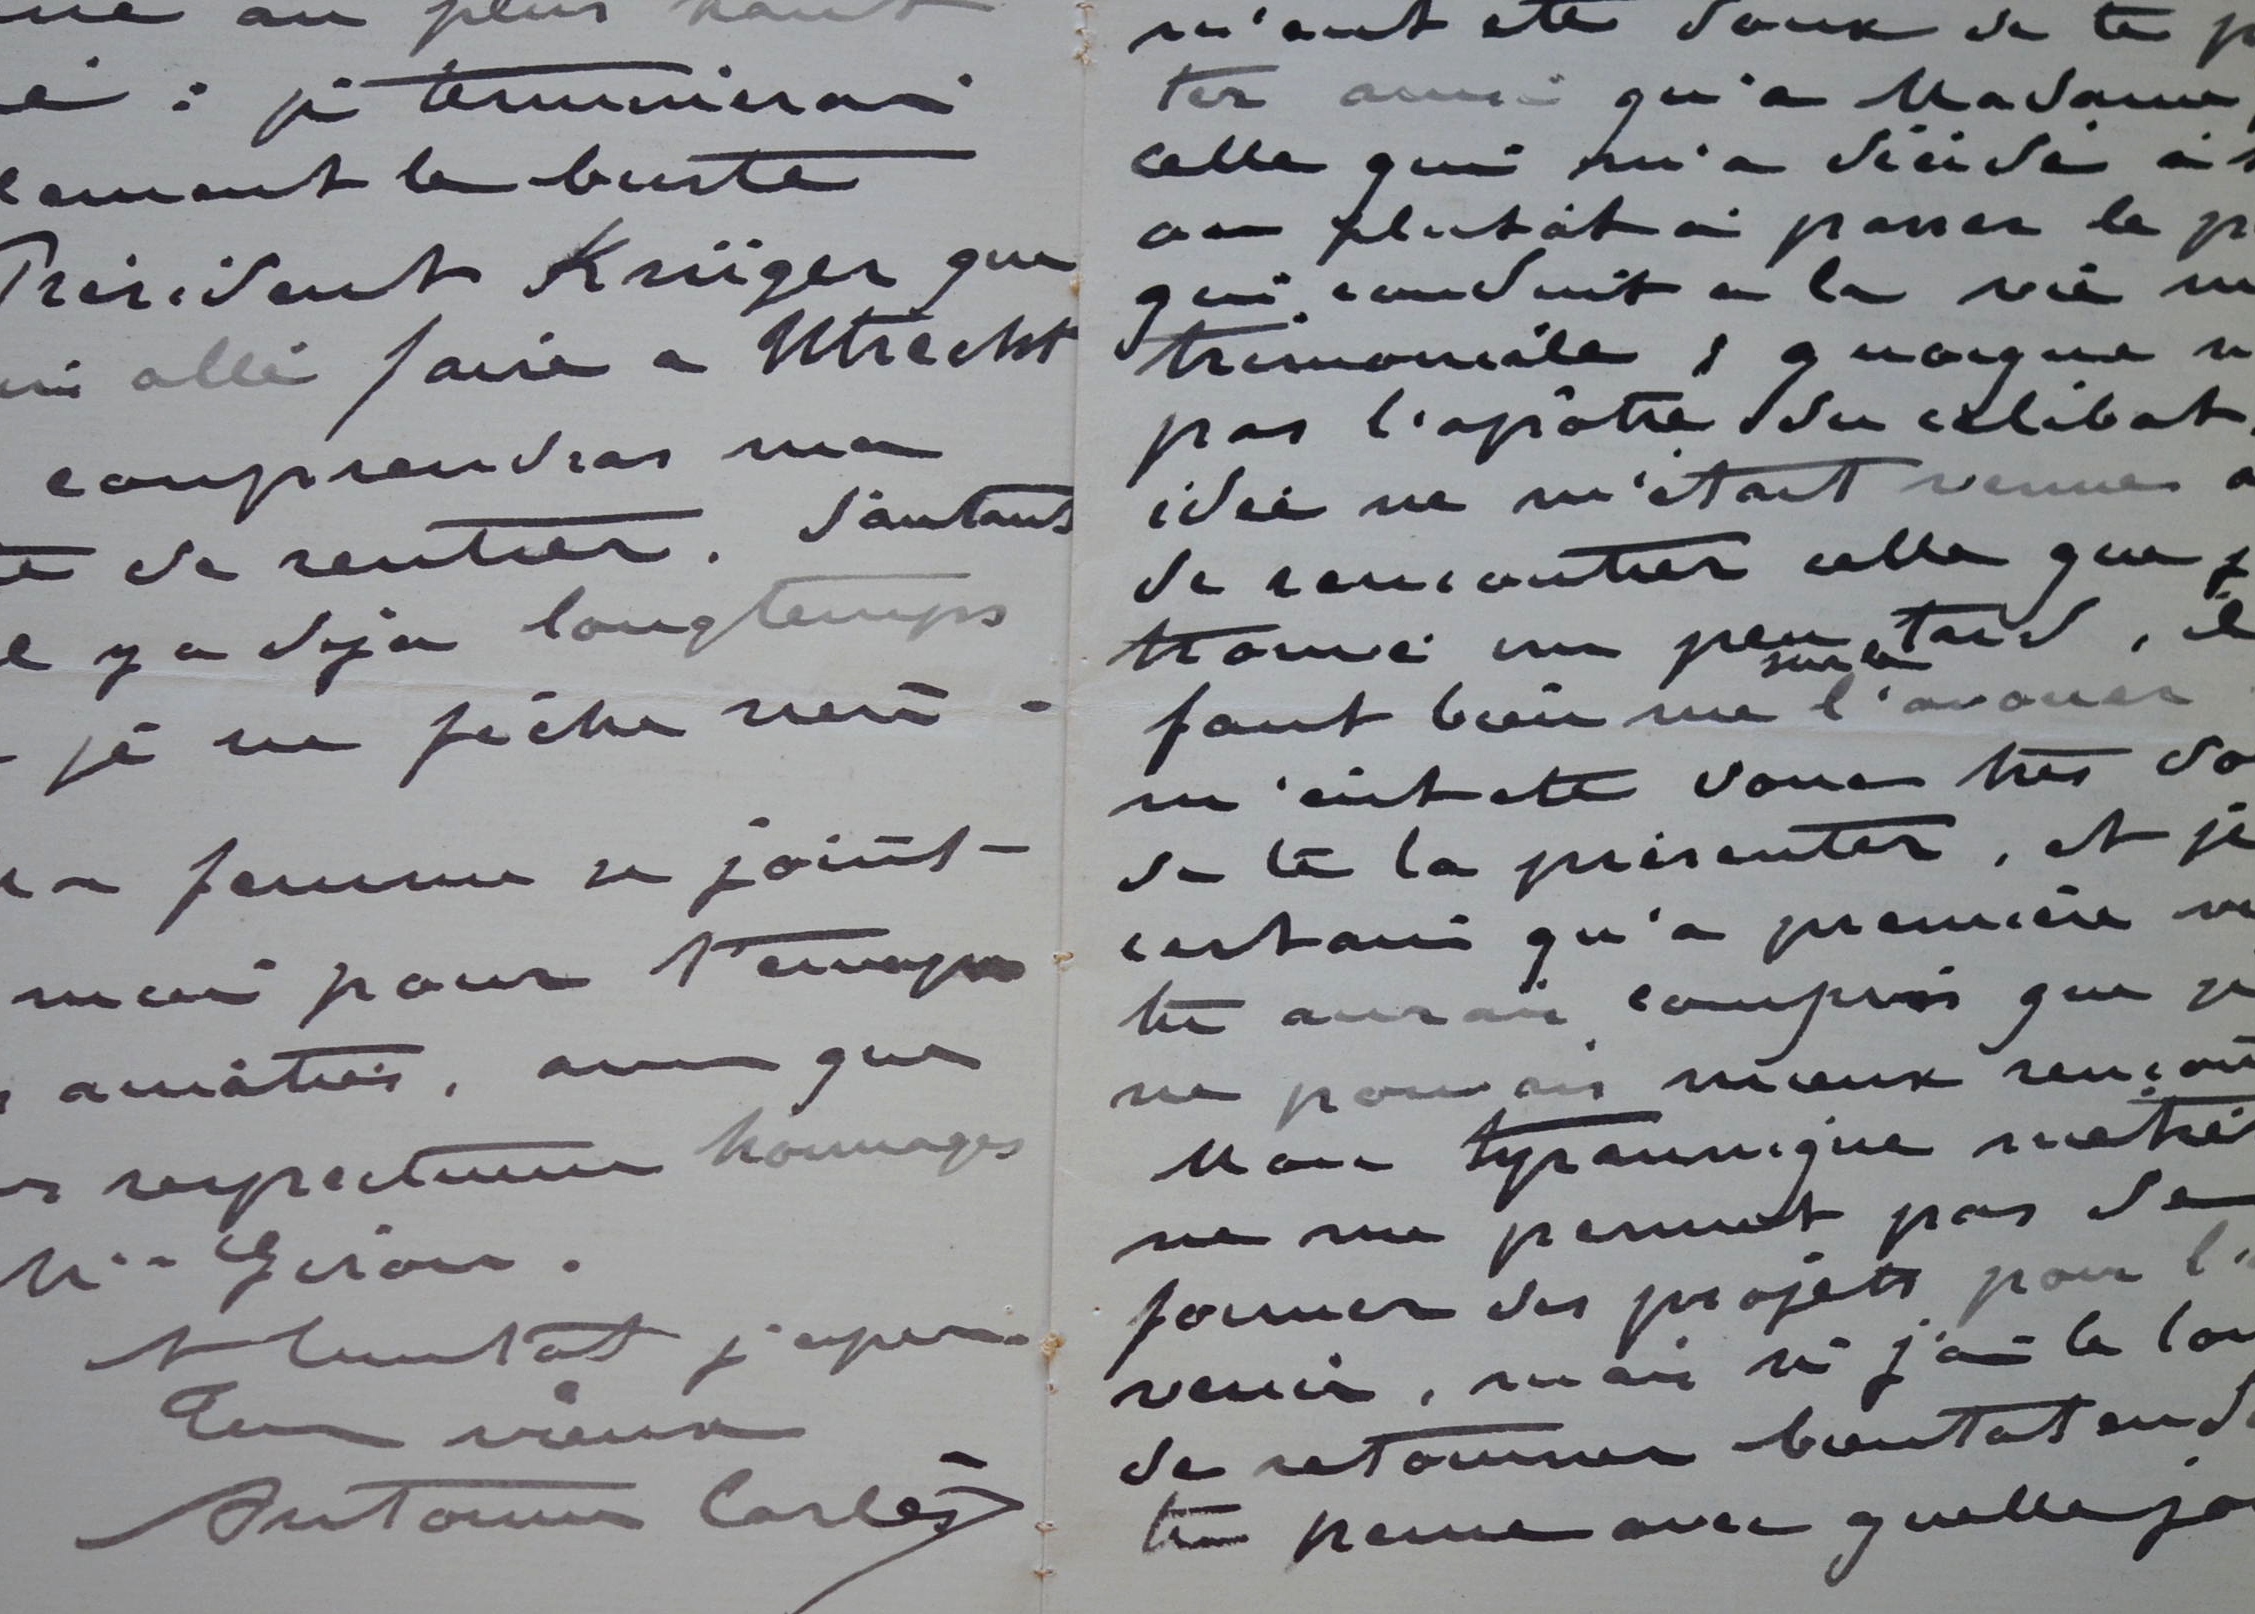 au plus haut
: je terminerai
lement le buste
Président Krüger que
allé faire a Utrecht
comprendras ma
de rentrer. d'autant
y a deja longtemps
je ne fiche rien -
femme se joint -
moi pour t'envoyer
amitiés, ainsi que
respectueux hommages
Mme Giron.
et bientot j'espere.
Ton vieux
Antonin Carlès
m'eut ete doux de te p
ter ainsi qu'a Madame
celle qui m'a décidé à
ou plutôt à passer le p
qui conduit a la vie m
trimoniale ; quoique n
pas l'apôtre du célibat,
idée ne m'étant venue
de rencontrer celle que j
trouvé un peu sur le tard, il
faut bien me l'avouer
m'eût ete donc très do
de te la présenter, et je
certain qu'a premiere vu
tu aurais compris que je
ne pouvais mieux rencont
Mon tyrannique metie
ne me permet pas de
former des projets pour l'a
venir, mais si j'ai le
de retourner bientot en
tu pense avec quelle joi